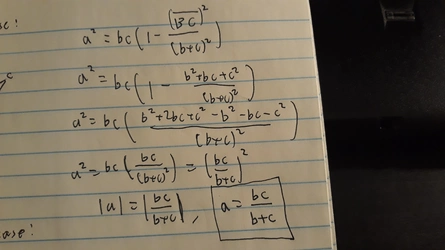 se:
a² = bc(1 - (BC)²/(b+c)²)
c
a² = bc(1 - b²+bc+c²/(b+c)²)
a² = bc(b²+2bc+c²-b²-bc-c²/(b+c)²)
a² = bc(bc/(b+c)²) = (bc/b+c)²
|a| = |bc/b+c|, a = bc/b+c
ase: